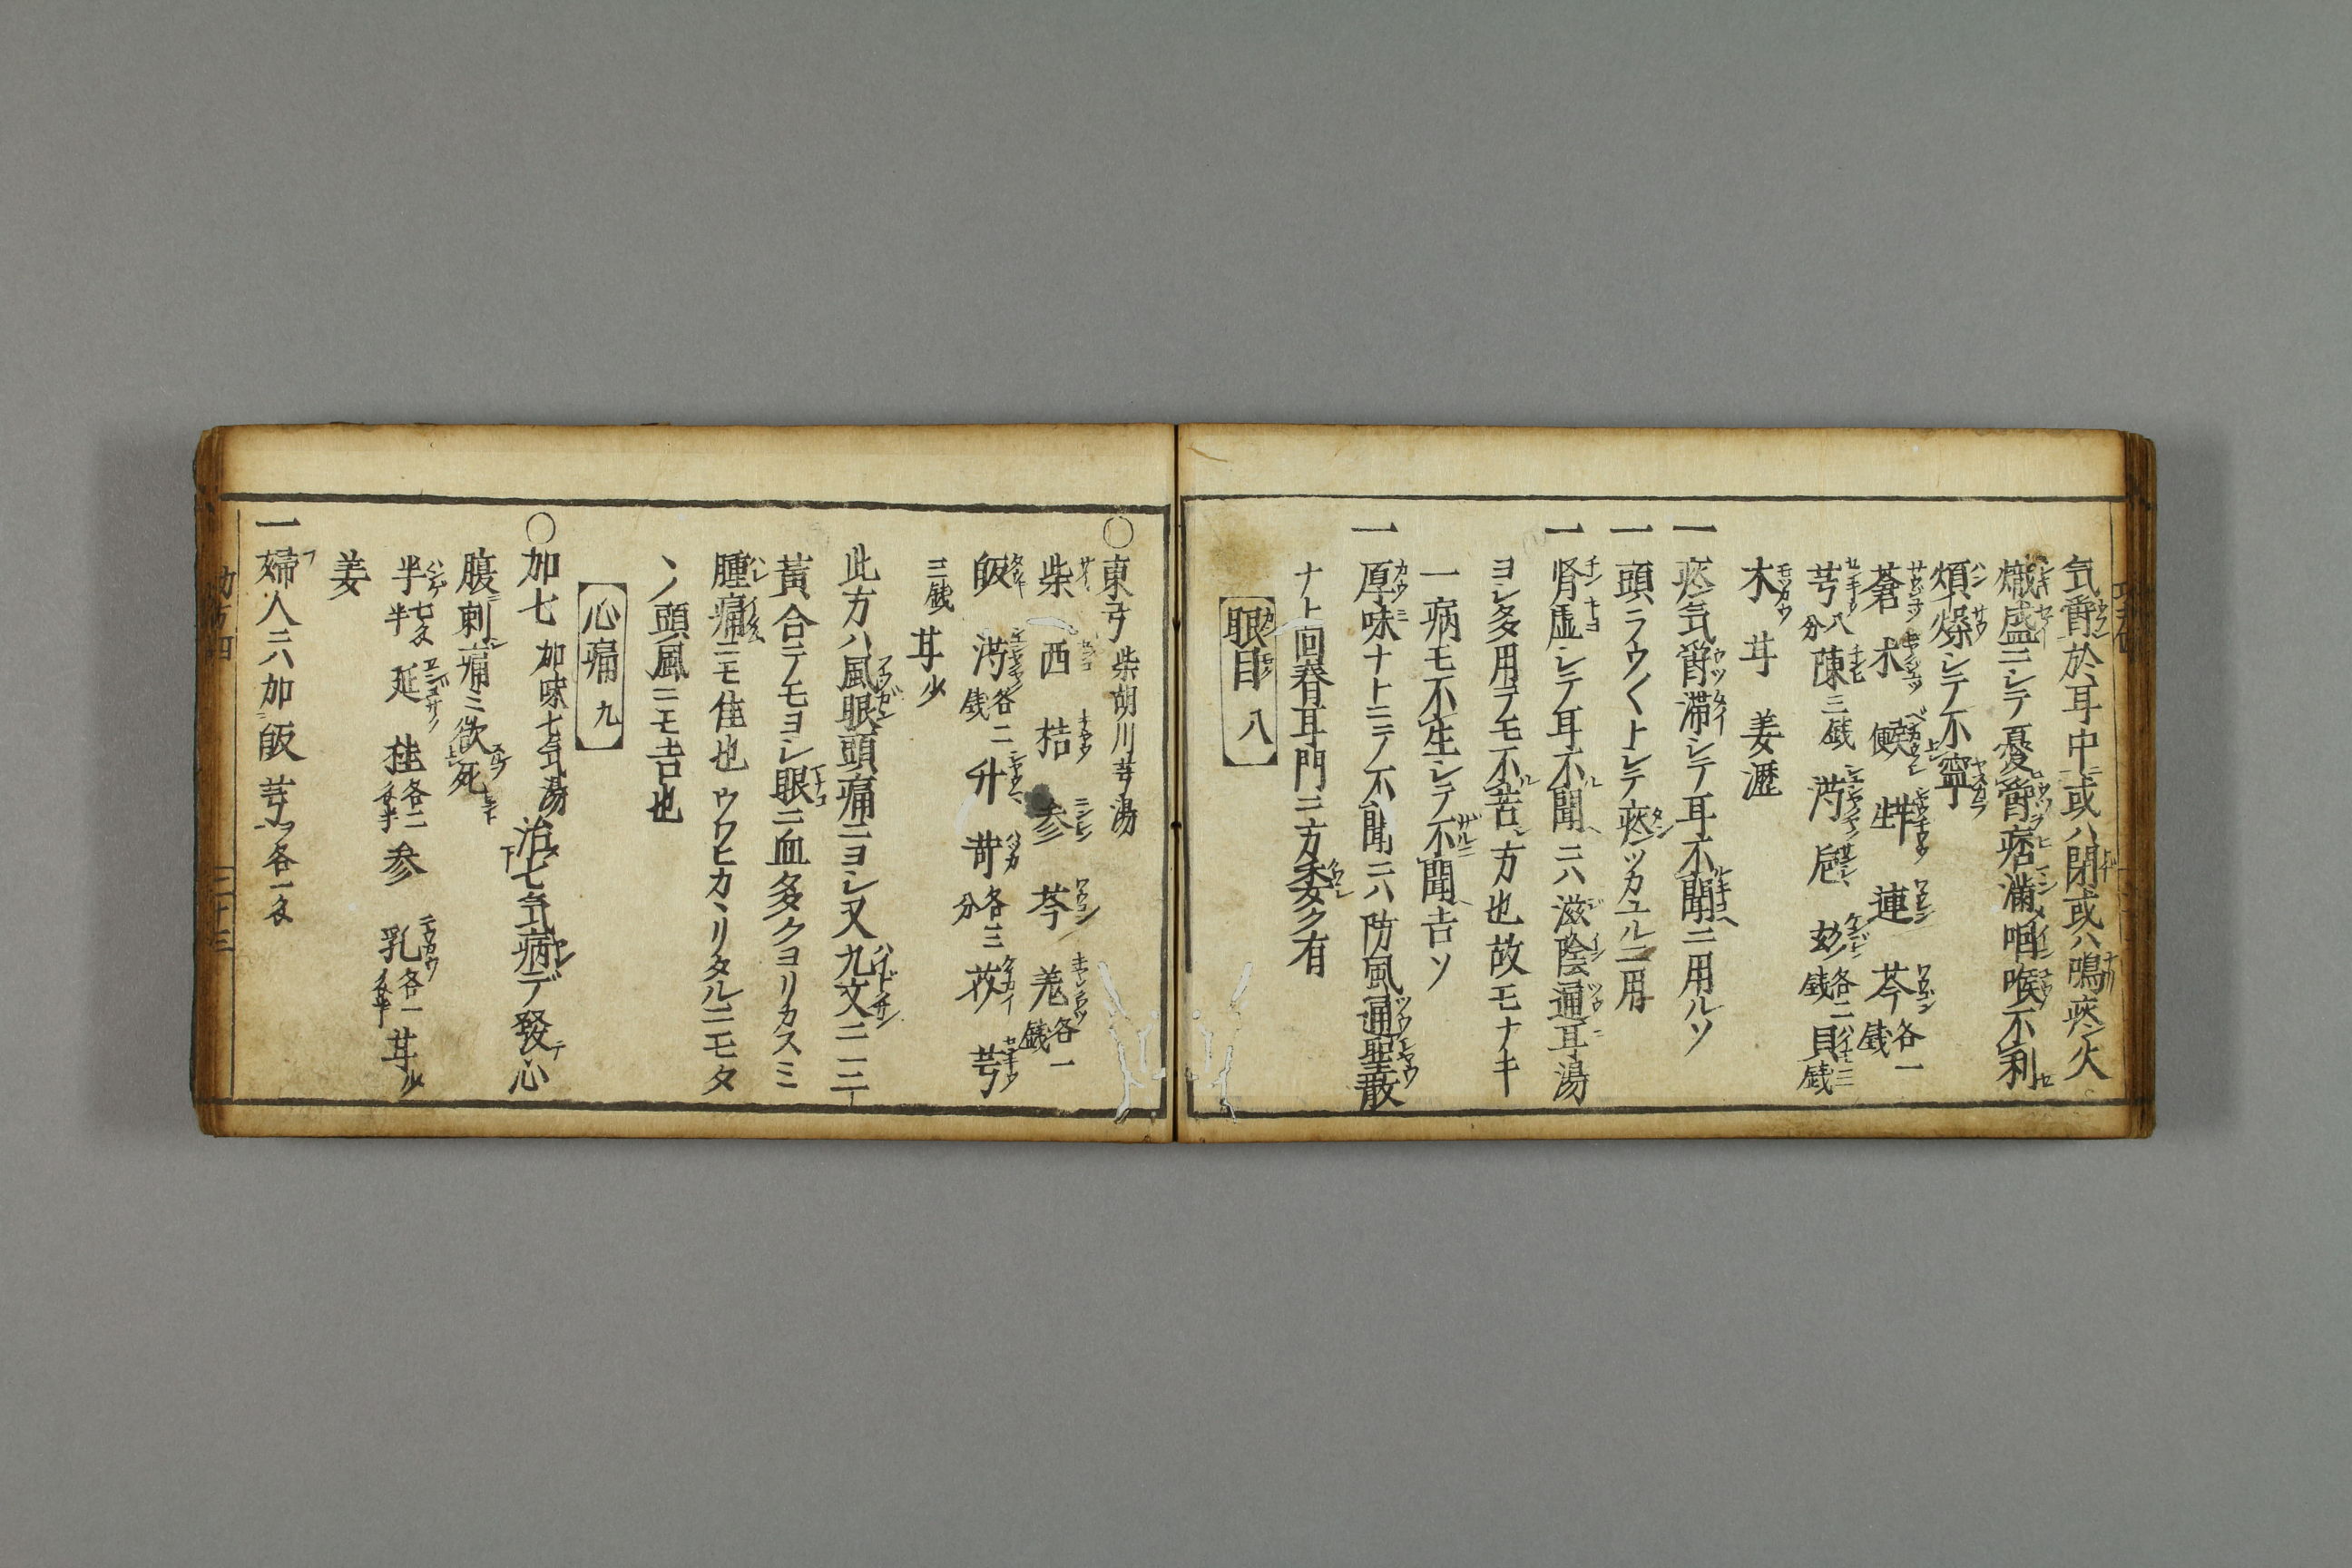 気欝於耳中或ハ閉或ハ鳴痰火
熾盛ニシテ憂欝痞滿咽喉不利
煩燥シテ不寧
蒼 朮 便 牛 連 芩各一錢
芎八分 陳三錢 芍 梔 各二錢 貝錢
木 耳 姜瀝
一 痰気欝滞シテ耳不聞ニ用ルソ
一 頭ラウ〱トシテ痰ツカユルニ用
一 腎虚シテ耳不聞ニハ滋陰通耳湯
ヨシ多用テモ不苦方也故モナキ
一病モ不生シテ不聞吉ソ
一 厚味ナトニテ不聞ニハ防風通聖散
ナト回春耳門ニ方委ク有
眼目 八
○東弓 柴胡川芎湯
柴 西 桔 参 芩 羌各一錢
皈 芍各二錢 升 荷各三分 芎
三錢 耳少
此方ハ風眼頭痛ニヨシ又九文ニ二
黃合テモヨシ眼ニ血多クヨリカスミ
腫痛ニモ佳也ウワヒカヽリタルニモタ
ヽ頭風ニモ吉也
心痛 九
○加七 加味七気湯 治七気病デ發心
腹刺痛ミ欲死
半七分半 延 桂各二 参 乳各一 耳少
姜
一 婦人ニハ加皈芎各一